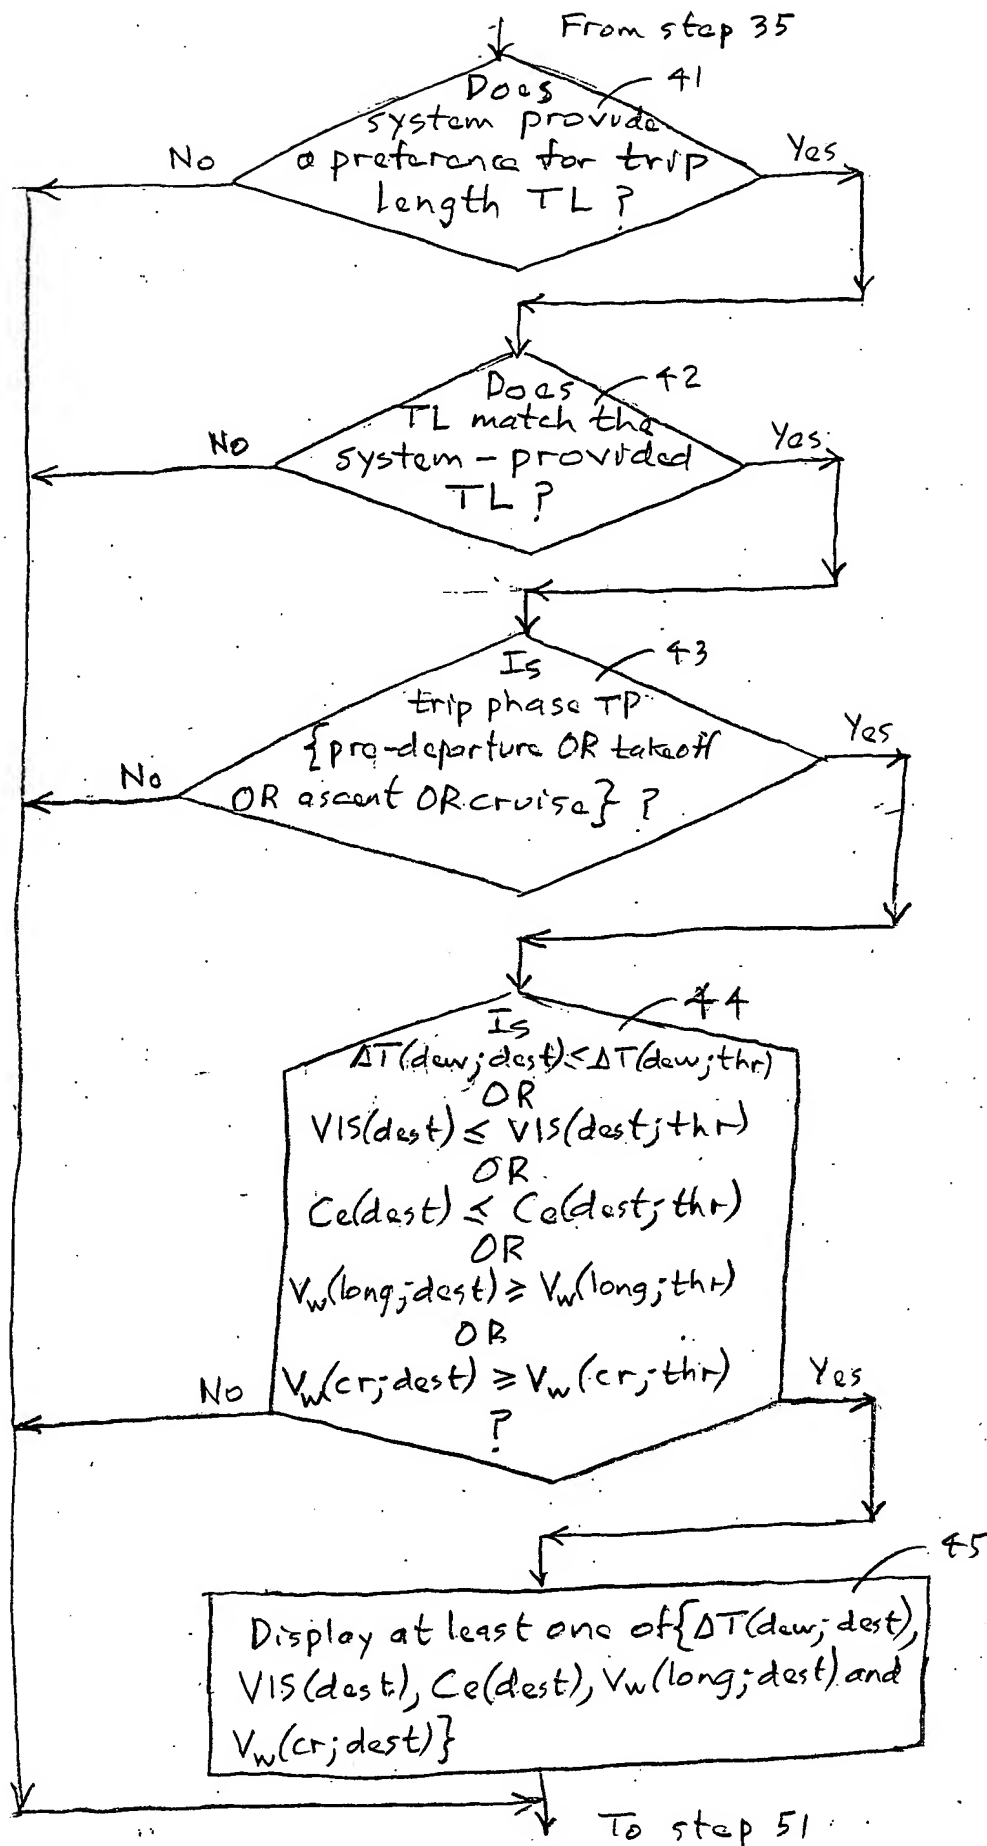 From step 35
41
Does
system provide
a preference for trip
length TL ?
No
Yes
42
Does
TL match the
system - provided
TL ?
No
Yes
43
Is
trip phase TP
{pre-departure OR takeoff
OR ascent OR cruise} ?
No
Yes
44
Is
ΔT(dew; dest) ≤ ΔT(dew; thr)
OR
VIS(dest) ≤ VIS(dest; thr)
OR
Ce(dest) ≤ Ce(dest; thr)
OR
Vw(long; dest) ≥ Vw(long; thr)
OR
Vw(cr; dest) ≥ Vw(cr; thr)
?
No
Yes
45
Display at least one of {ΔT(dew; dest),
VIS(dest), Ce(dest), Vw(long; dest) and
Vw(cr; dest)}
To step 51